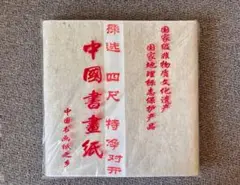 臻选 四尺 特净对开
国家级非物质文化遗产
国家地理标志保护产品
中國書畫紙
中国书画纸之乡